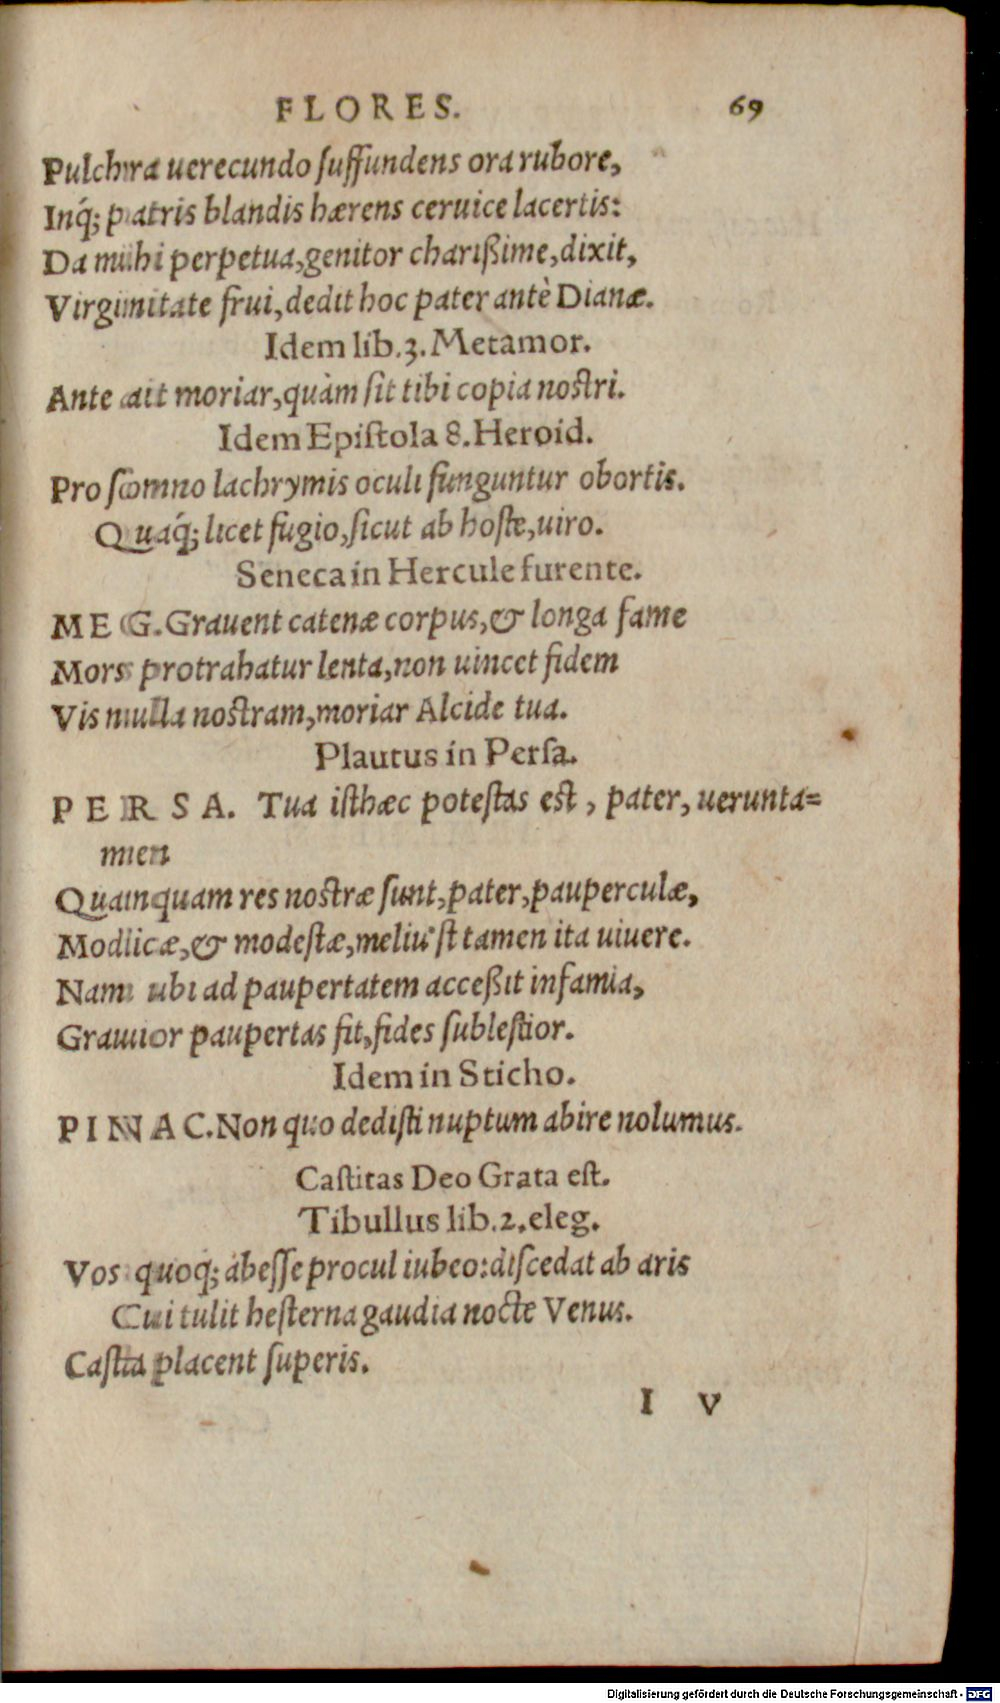 FLORES. 69
Pulchra uerecundo ſuffundens ora rubore,
Inq́; patris blandis hærens ceruice lacertis:
Da mihi perpetua, genitor charißime, dixit,
Virginitate frui, dedit hoc pater antè Dianæ.
Idem lib.3. Metamor.
Ante ait moriar, quàm ſit tibi copia noſtri.
Idem Epiſtola 8. Heroid.
Pro ſomno lachrymis oculi funguntur obortis.
Quaq́; licet fugio, ſicut ab hoſte, uiro.
Seneca in Hercule furente.
MEG. Grauent catenæ corpus, & longa fame
Mors protrahatur lenta, non uincet fidem
Vis nulla noſtram, moriar Alcide tua.
Plautus in Perſa.
PERSA. Tua iſthæc poteſtas eſt, pater, uerunta=
men
Quamquam res noſtræ ſunt, pater, pauperculæ,
Modicæ, & modeſtæ, meliu'ſt tamen ita uiuere.
Nam ubi ad paupertatem acceßit infamia,
Grauior paupertas fit, fides ſubleſtior.
Idem in Sticho.
PINAC. Non quo dediſti nuptum abire nolumus.
Caſtitas Deo Grata eſt.
Tibullus lib.2. eleg.
Vos quoq; abeſſe procul iubeo: diſcedat ab aris
Cui tulit heſterna gaudia nocte Venus.
Caſta placent ſuperis.
I V
Digitalisierung gefördert durch die Deutsche Forschungsgemeinschaft - DFG